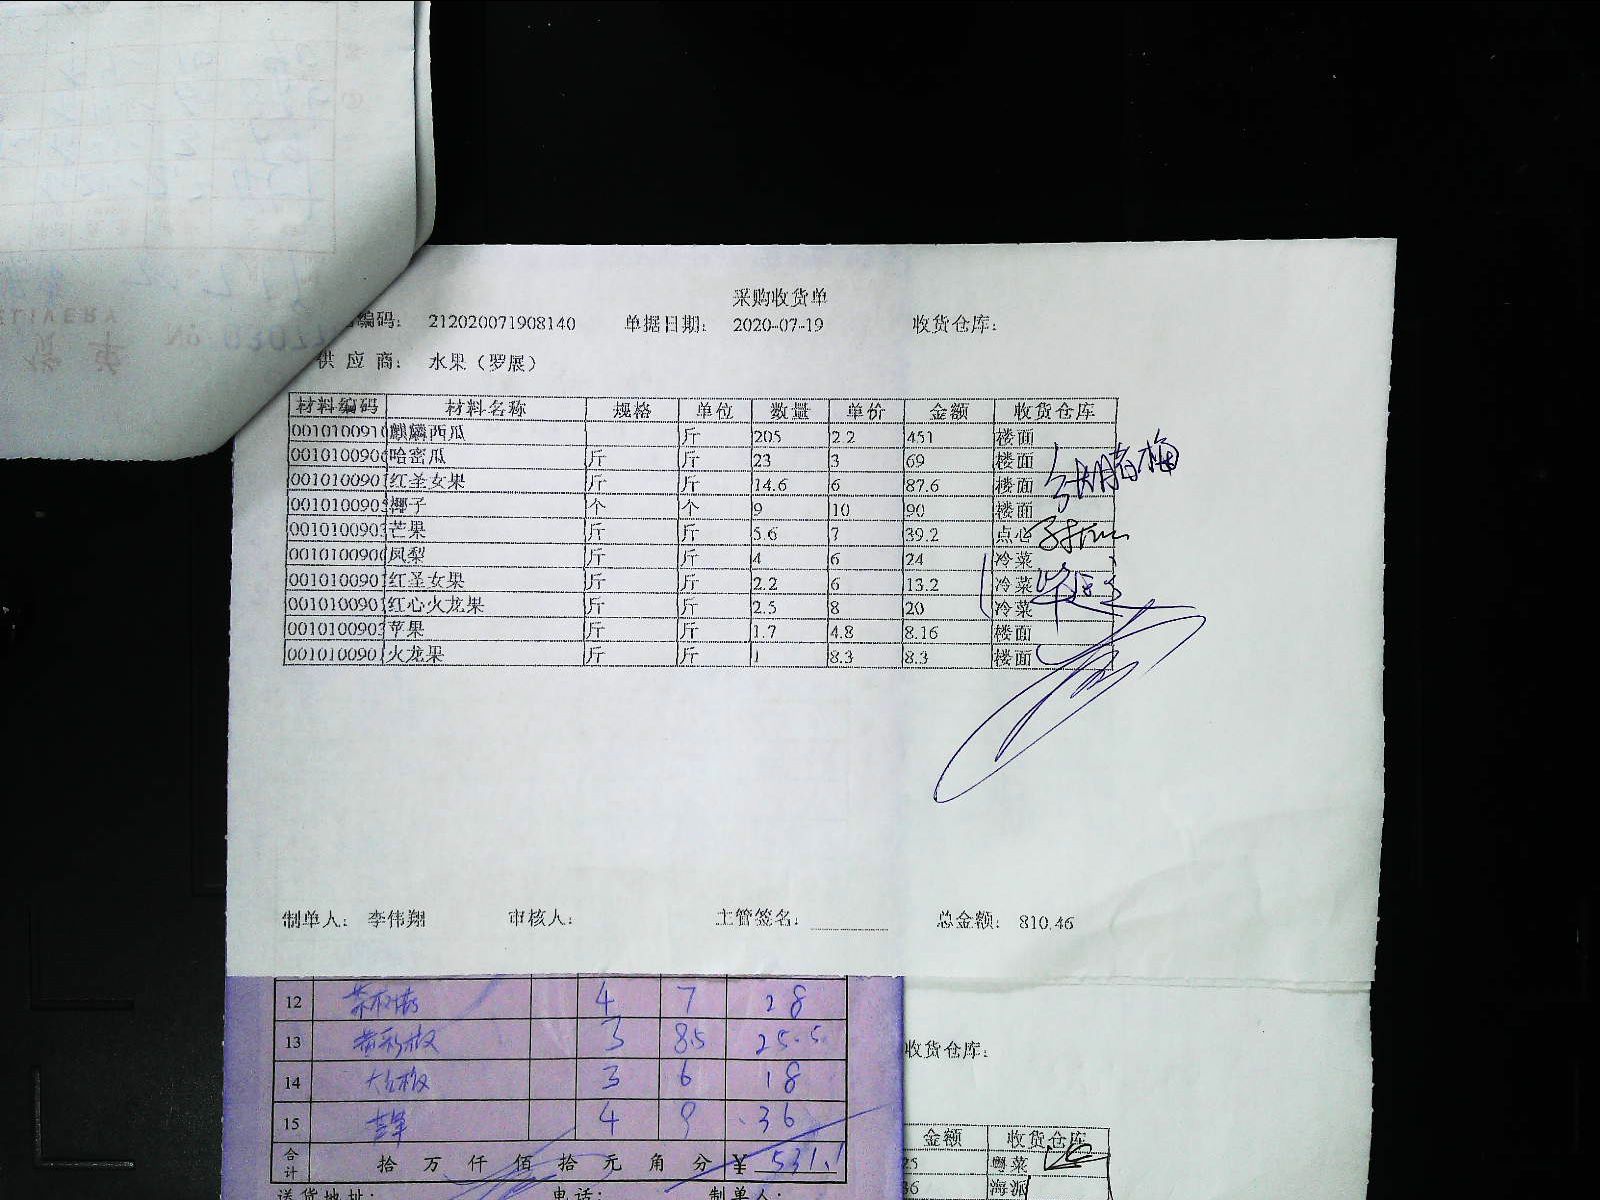 采购收货单
编码： 212020071908140 单据日期： 2020-07-19 收货仓库：
供 应 商： 水果（罗展）
材料编码 材料名称 规格 单位 数量 单价 金额 收货仓库
0010100910 麒麟西瓜 斤 205 2.2 451 楼面
001010090 哈密瓜 斤 斤 23 3 69 楼面
001010090 红圣女果 斤 斤 14.6 6 87.6 楼面
001010090 椰子 个 个 9 10 90 楼面
001010090 芒果 斤 斤 5.6 7 39.2 点心
001010090 凤梨 斤 斤 4 6 24 冷菜
001010090 红圣女果 斤 斤 2.2 6 13.2 冷菜
001010090 红心火龙果 斤 斤 2.5 8 20 冷菜
001010090 苹果 斤 斤 1.7 4.8 8.16 楼面
001010090 火龙果 斤 斤 1 8.3 8.3 楼面
制单人： 李伟翔 审核人： 主管签名： 总金额： 810.46
12 4 7 28
13 3 8.5 25.5
14 3 6 18
15 4 9 36
合计 拾 万 仟 佰 拾 元 角 分 ¥ 531.1
送货地址： 电话： 制单人：
收货仓库：
金额 收货仓库
粤菜
海派